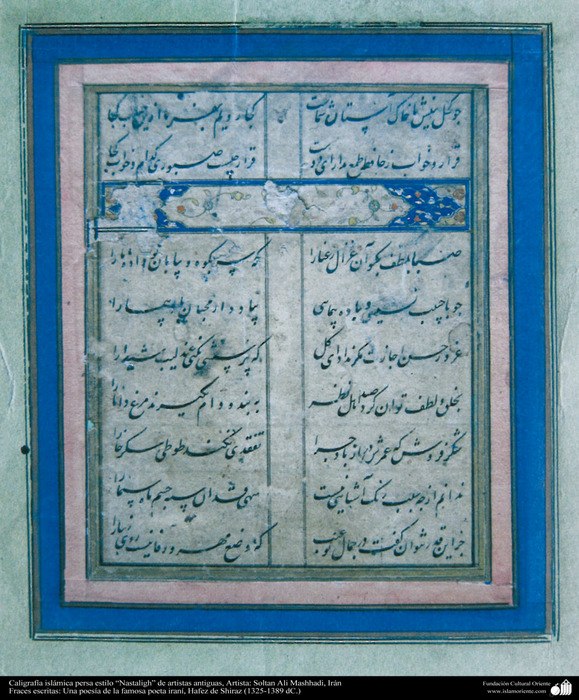 چو کحل بینش ما خاک آستان شماست کجا رویم بفرما ازین جناب کجا
قرار و خواب ز حافظ طمع مدار ای دوست قرار چیست صبوری کدام و خواب کجا
صبا بلطف بگو آن غزال رعنا را که سر بکوه و بیابان تو داده ما را
چو با حبیب نشینی و باده پیمایی بیاد دار محبان بادپیما را
غرور حسن اجازت مگر نداد ای گل که پرسشی نکنی عندلیب شیدا را
بخلق و لطف توان کرد صید اهل نظر به بند و دام نگیرند مرغ دانا را
شکرفروش که عمرش دراز باد چرا تفقدی نکند طوطی شکرخا را
ندانم از چه سبب رنگ آشنایی نیست سهی قدان سیه چشم ماه سیما را
جز این قدر نتوان گفت در جمال تو عیب که وضع مهر و وفا نیست روی زیبا را
Caligrafía islámica persa estilo “Nastaligh” de artistas antiguas, Artista: Soltan Ali Mashhadi, Irán
Fraces escritas: Una poesía de la famosa poeta iraní, Hafez de Shiraz (1325-1389 dC.)
Fundación Cultural Oriente
www.islamoriente.com